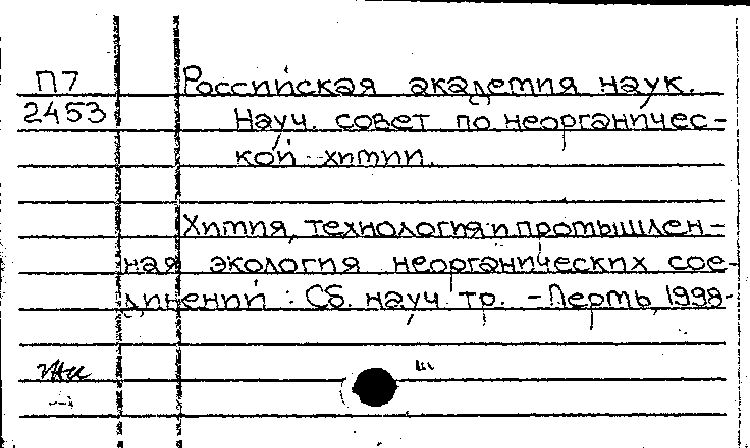 П7 Российская академия наук.
2453 Науч. совет по неорганичес-
кой химии.
Химия, технология и промышлен-
ная экология неорганических сое-
динений : Сб. науч. тр. - Пермь, 1998-